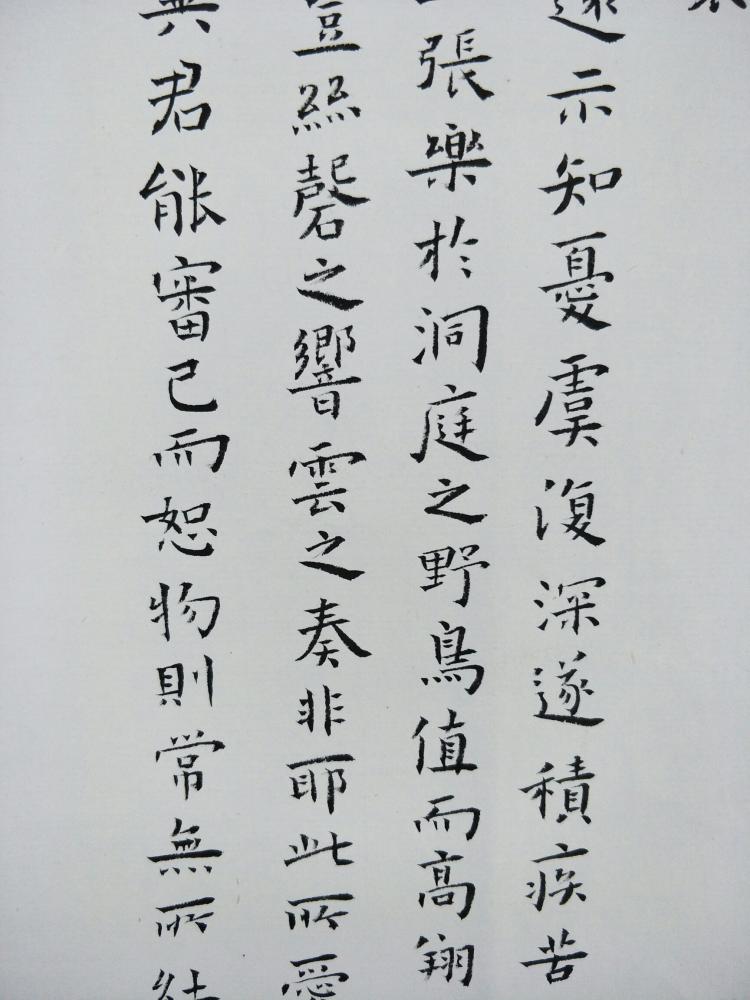 遠示知憂虞復深遂積疾苦
張樂於洞庭之野鳥值而高翔
豈絲磬之響雲之奏非耶此所愛
吳君能審己而恕物則常無所結